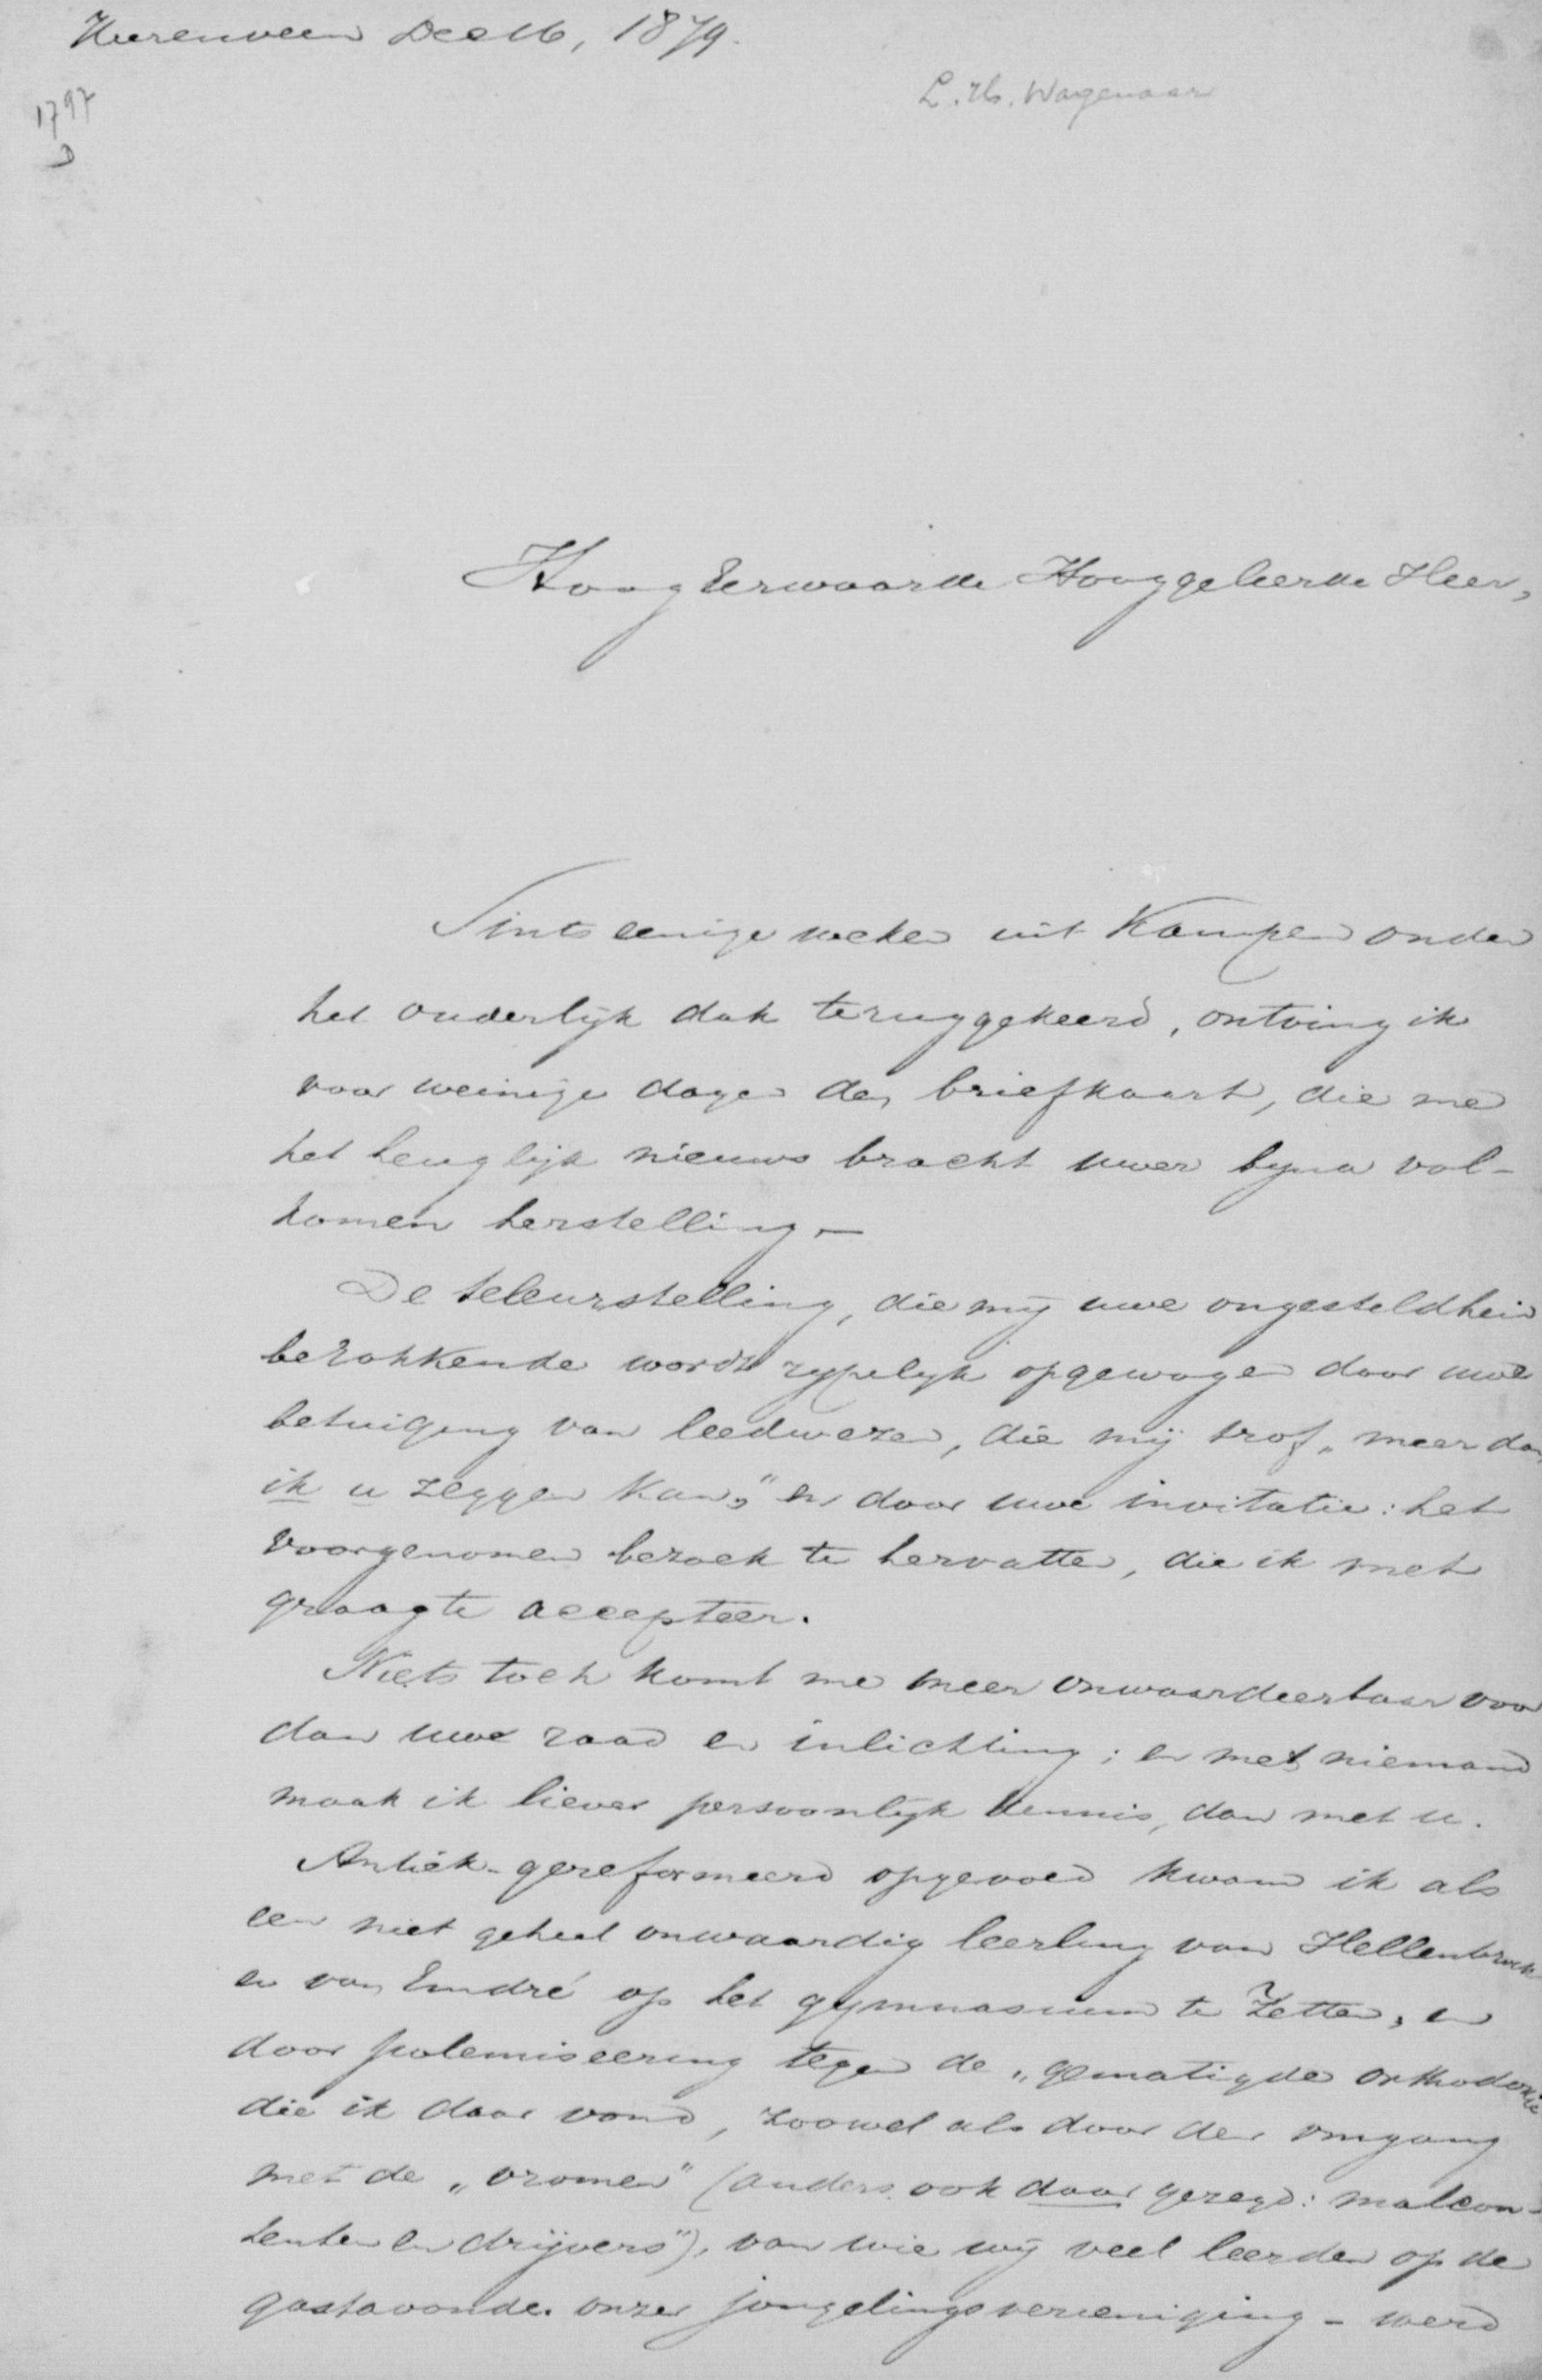 Heerenveen Dec 16, 1879.
L. Th. Wagenaar
1797
D
HoogEerwaarde Hooggeleerde Heer,
Sints eenige weken uit Kampen onder
het ouderlijk dak teruggekeerd, ontving ik
voor weinige dagen de briefkaart, die me
het heuglijk nieuws bracht uwer byna vol-
komen herstelling. —
De teleurstelling, die mij uwe ongesteldheid
berokkende wordt rypelyk opgewogen door uwe
betuiging van leedwezen, die mij trof „meer dan
ik u zeggen kan," en door uwe invitatie: het
voorgenomen bezoek te hervatten, die ik met
graagte accepteer.
Niets toch komt me meer onwaardeerbaar voor
dan uwe raad en inlichting; en met niemand
maak ik liever persoonlijk kennis, dan met u.
Antiek-gereformeerd opgevoed kwam ik als
een niet geheel onwaardig leerling van Hellenbroek
en van Eudré op het gymnasium te Zetten, en
door polemiseering tegen de „gematigde orthodoxie
die ik daar vond, zoowel als door den omgang
met de „vromen" (anders ook daar gezegd: malcon-
tenten en drijvers"), van wie wij veel leerden op de
gastavonden onzer jongelingsvereeniging – werd